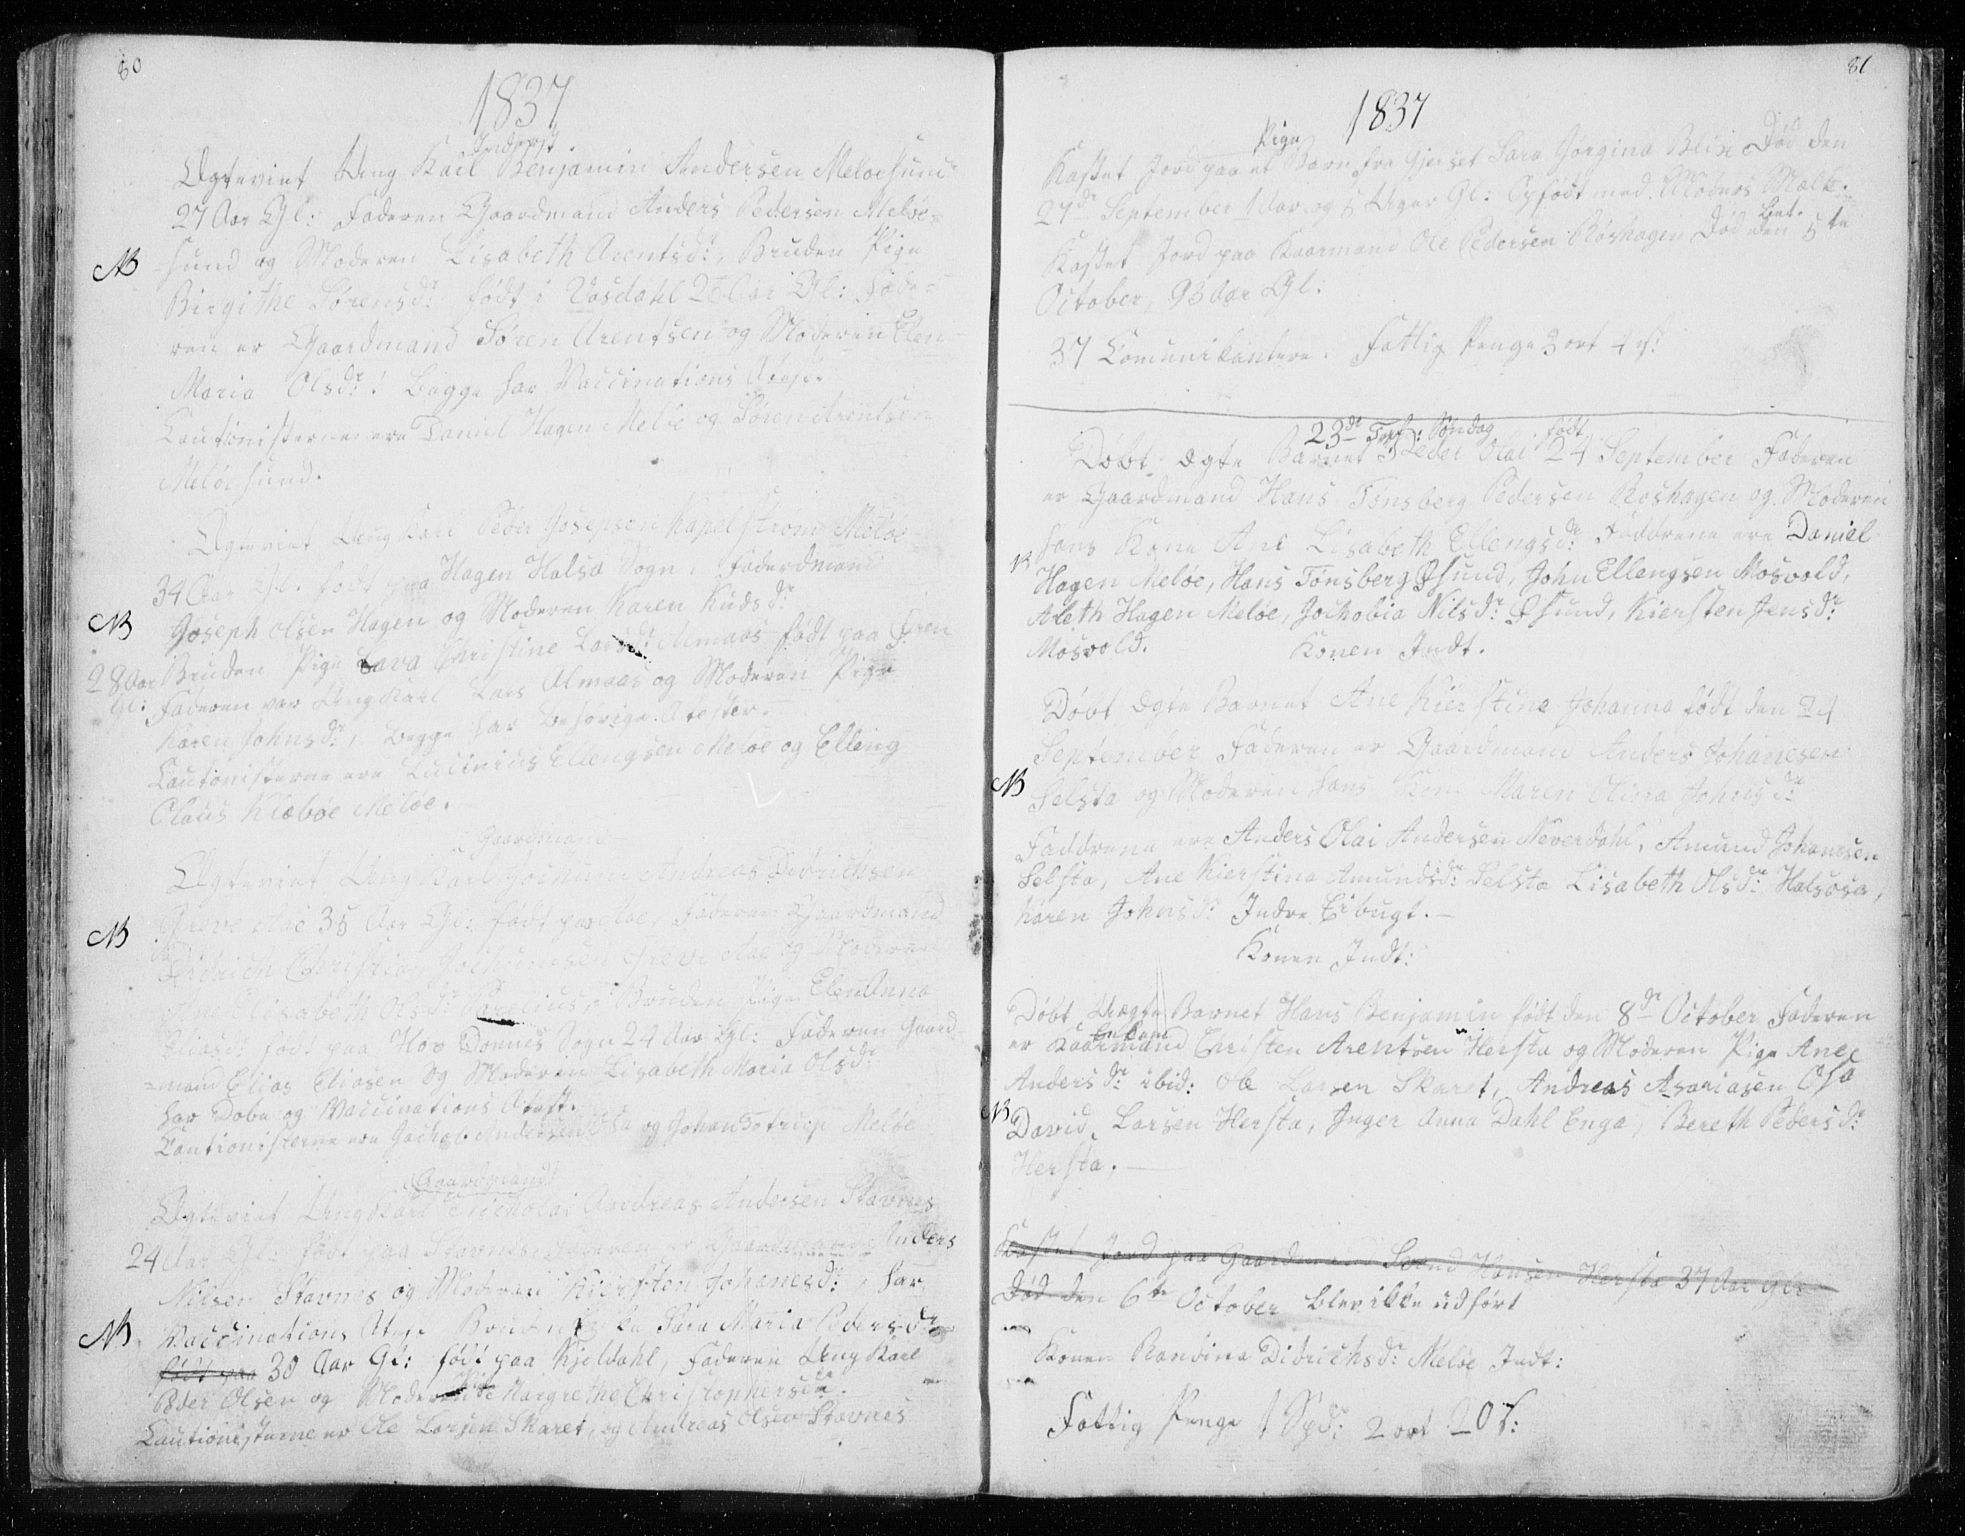 80
1837
Inderst
Ægteviet Ung Karl Benjamin Andersen Meløesund
27 Aar Gl: Faderen Gaardmand Anders Pedersen Meløe-
NB
sund og Moderen Lisabeth Arentsdr, Bruden Pige
Birgithe Sørensdr født i Vasdahl 26 Aar Gl: Fade-
ren er Gaardmand Søren Arentsen og Moderen Elen
Maria Olsdr: begge har Vaccinations Atest.
Cautionisterne ere Daniel Hagen Meløe og Søren Arentsen
Meløesund.
Ægteviet Ung Karl Peder Josepsen Kapelstrøm Meløe
34 Aar Gl. født paa Hagen Halsa Sogn.
NB
Joseph Olsen Hagen og Moderen Karen Kudsdr
28 Aar Bruden Pige Lava Christine Larsdr Almaas født paa
Gl: Faderen var Ung Karl Lars Almaas og Moderen Pige
Karen Johnsdr, begge har behørige Atester.
Cautionisterne ere Lucinius Ellengsen Meløe og Elling
Claus Klæboe Meløe.
Gaardmand
Ægteviet Ung Karl Jochum Andreas Didrichsen
NB
Greve 35 Aar Gl: født paa Faderen Gaardmand
Didrich Christian Jochumsen Greve og Moderen
Ane Elisabeth Olsdr Bruden Pige Elen Anna
Eliasdr født paa Hov Dønnes Sogn 24 Aar Gl: Faderen Gaard-
mand Elias Eliasen og Moderen Lisabeth Maria Olsdr
har Døbe og Vaccinations Atest.
Cautionisterne ere Jachob Andersen og Johan Meløe
Gaardmand
Ægteviet Ung Karl Nicholai Andreas Andersen Stavnes
24 Aar Gl: født paa Stavnes, Faderen er Gaardmand Anders
Nilsen Stavnes og Moderen Kiersten Johanesdr, har
NB
Vaccinations Atest Bruden Sara Maria Pedersdr
født paa 30 Aar Gl: født paa Kjeldahl, Faderen Ung Karl
Peder Olsen og Moderen Margrethe Christophersdr.
Cautionisterne er Ole Larsen Skaret, og Andreas Olsen Stavnes
81
1837
Pige
Kastet Jord paa et Barn fra Gjerset Sara Jørgina Blix Død den
27de September 1 Aar og 5 Uger Gl: Opfødt med Moders Melk.
Kastet Jord paa Kaarmand Ole Pedersen Røshagen Død den 5te
October, 93 Aar Gl:
37 Comunikantere. Fattig Penge 3 ort 4 s:
23de Tref: Søndag
født
Døbt ægte Barnet Peder Olai 24 September Faderen
er Gaardmand Hans Tønsberg Pedersen Røshagen og Moderen
hans Kone Ane Lisabeth Ellengsdr: Faddrene ere Daniel
Hagen Meløe, Hans Tønsberg Øsund, John Ellengsen Mosvold,
Aleth Hagen Meløe, Jochobia Nilsdr: Øsund, Kiersten Jensdr:
Mosvold. Konen Indt.
Døbt ægte Barnet Ane Kierstine Johanna født den 24
September Faderen er Gaardmand Anders Johanesen
NB
Selsta og Moderen hans Kone Maren Olina Johnsdr
Faddrene ere Anders Olai Andersen Neverdahl, Amund Johansen
Selsta, Ane Kierstina Amundsdr: Selsta Lisabeth Olsdr: Halsosa,
Karen Johnsdr Indre Eibugt.
Konen Indt:
Døbt Uægte Barnet Hans Benjamin født den 8de October Faderen
Enkem
er Kaarmand Christen Arentsen Hersta og Moderen Pige Ane
Andersdr: ibid: Ole Larsen Skaret, Andreas Asariasen Osa
NB
David Larsen Hersta, Inger Anna Dahl Enga, Bereth Pedersdr:
Hersta.
Kastet Jord paa Gaardmand Svend Hansen Hersta 37 Aar Gl:
Død den 6te October blev ikke udført
Konen Randina Didrichsdr: Meløe Indt:
Fattig Penge 1 Spdr: 2 ort 20 s: